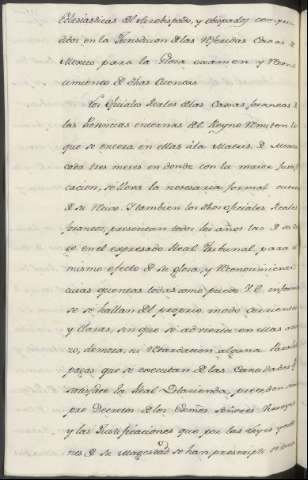 Eclesiasticas del Arzobispado, y obispados compren
didos en la Jurisdicion de las referidas Caxas de
Mexico para la Glosa examen y Recono
cimiento de dhas Cuentas
Los oficiales Reales de las Caxas foraneas de
las Provincias internas del Reyno Remiten lo
que se entera en ellas á la Matriz de Mexico
cada tres meses en donde con la maior Justifi
cacion, se lleva la necesaria formal cuenta
de su Ramo. I tambien los dhos oficiales Reales
foraneos, presentan todos los años las de su car
go en el expresado Real Tribunal, para el
mismo efecto de su glosa, y Reconocimiento
cuias quentas todas como puede V.E. informar
se se hallan del proprio modo corrientes
y Claras, sin que se advierta en ellas atra
zo, demora, ni Retardacion alguna
pagas que se executan de las Cantidades
satisface la Real Hacienda, preceden siem
pre Decretos de los Exmos. Señores Vireyes
y las Justificaciones que por las Leyes y orde
nes de su Magestad se han prescripto